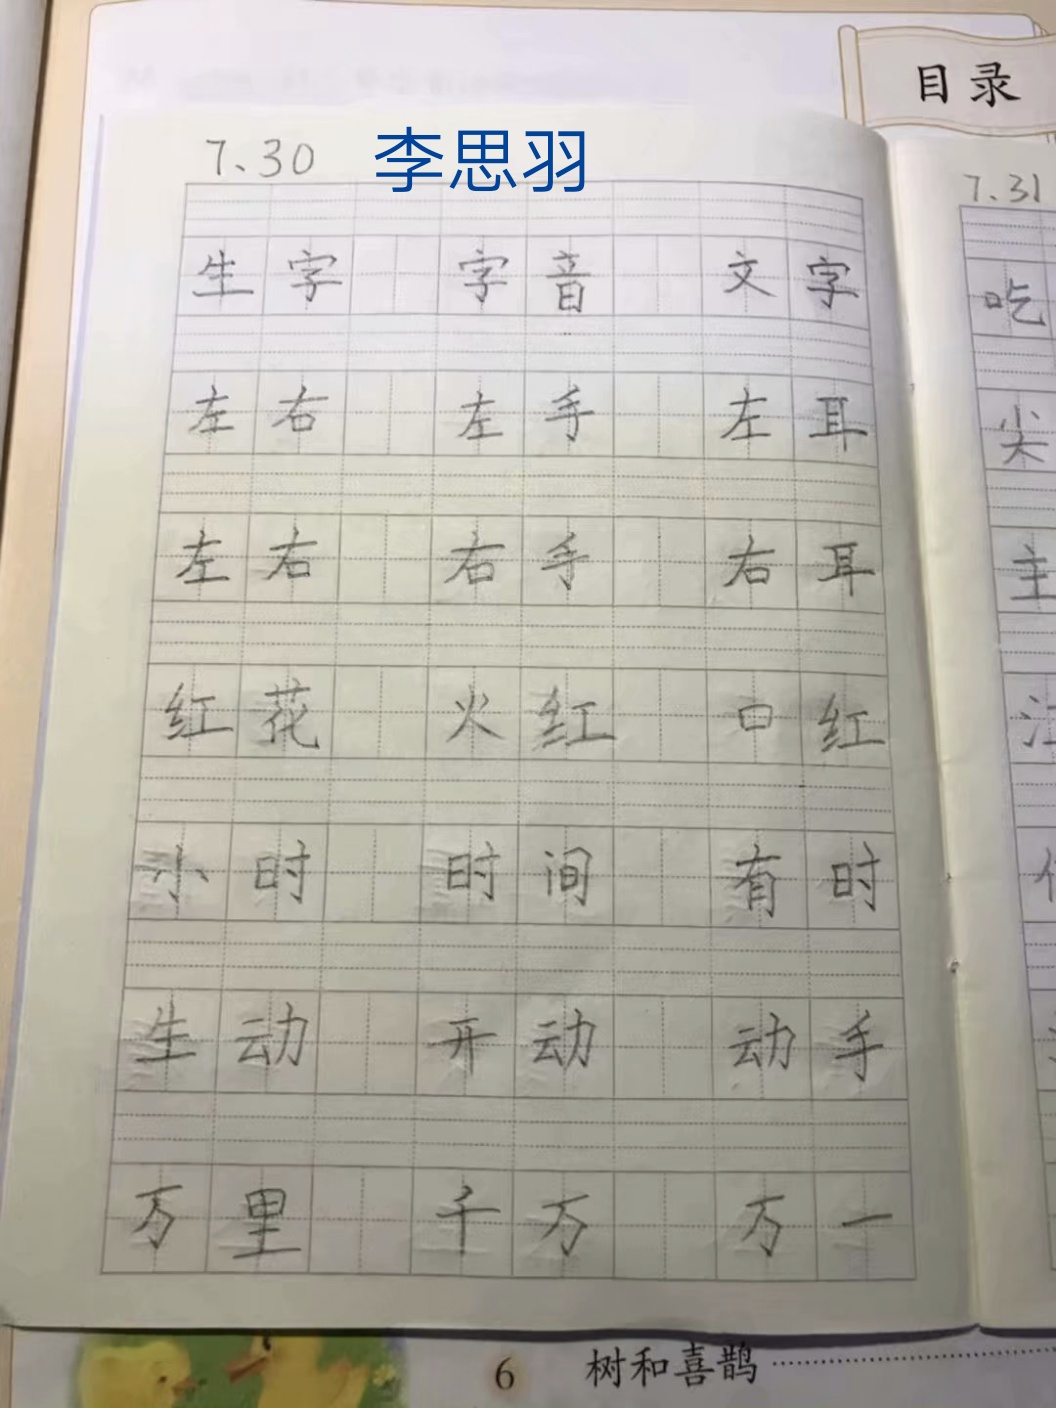 目录
7.30 李思羽
7.31
生字 字音 文字
左右 左手 左耳
左右 右手 右耳
红花 火红 口红
小时 时间 有时
生动 开动 动手
万里 千万 万一
吃
尖
主
6 树和喜鹊